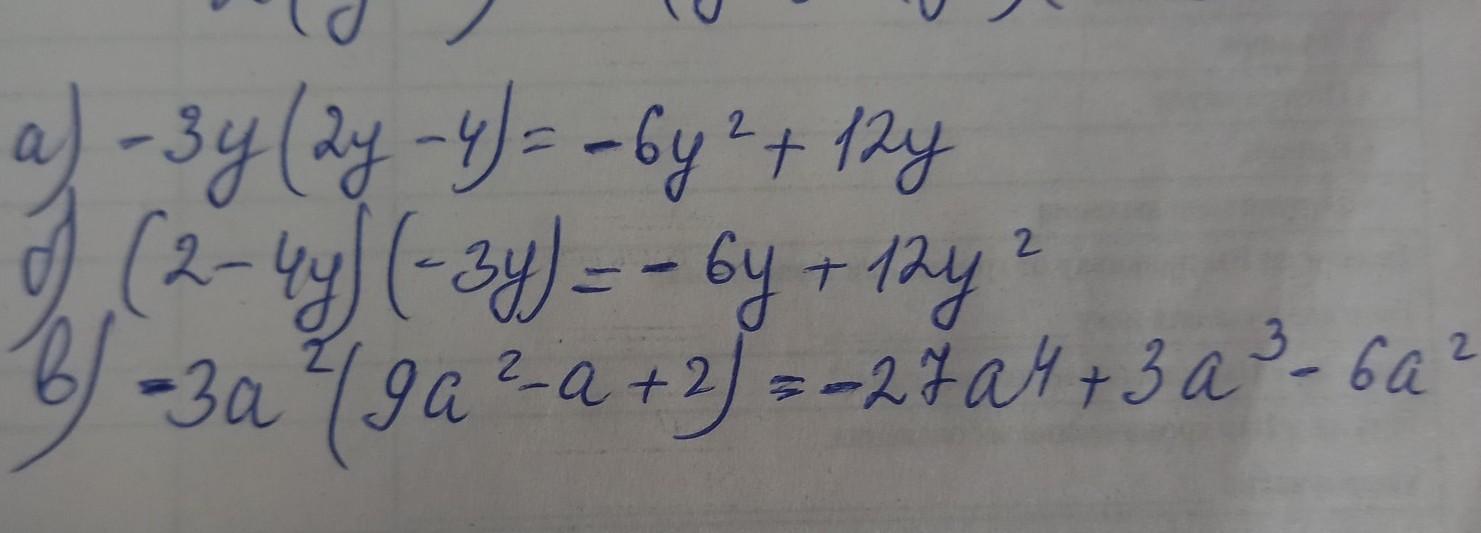 а) -3y(2y-4)= -6y²+12y
б) (2-4y)(-3y)=-6y+12y²
в) -3a²(9a²-a+2)=-27a4+3a³-6a²